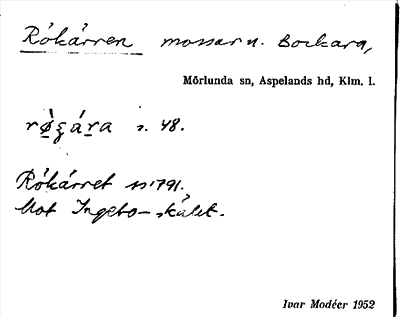 Rókärren mossar u. Bockara,
Mörlunda sn, Aspelands hd, Klm. l.
s. 48.
Rókärret 1791.
Mot Ingebo-skälet.
Ivar Modéer 1952